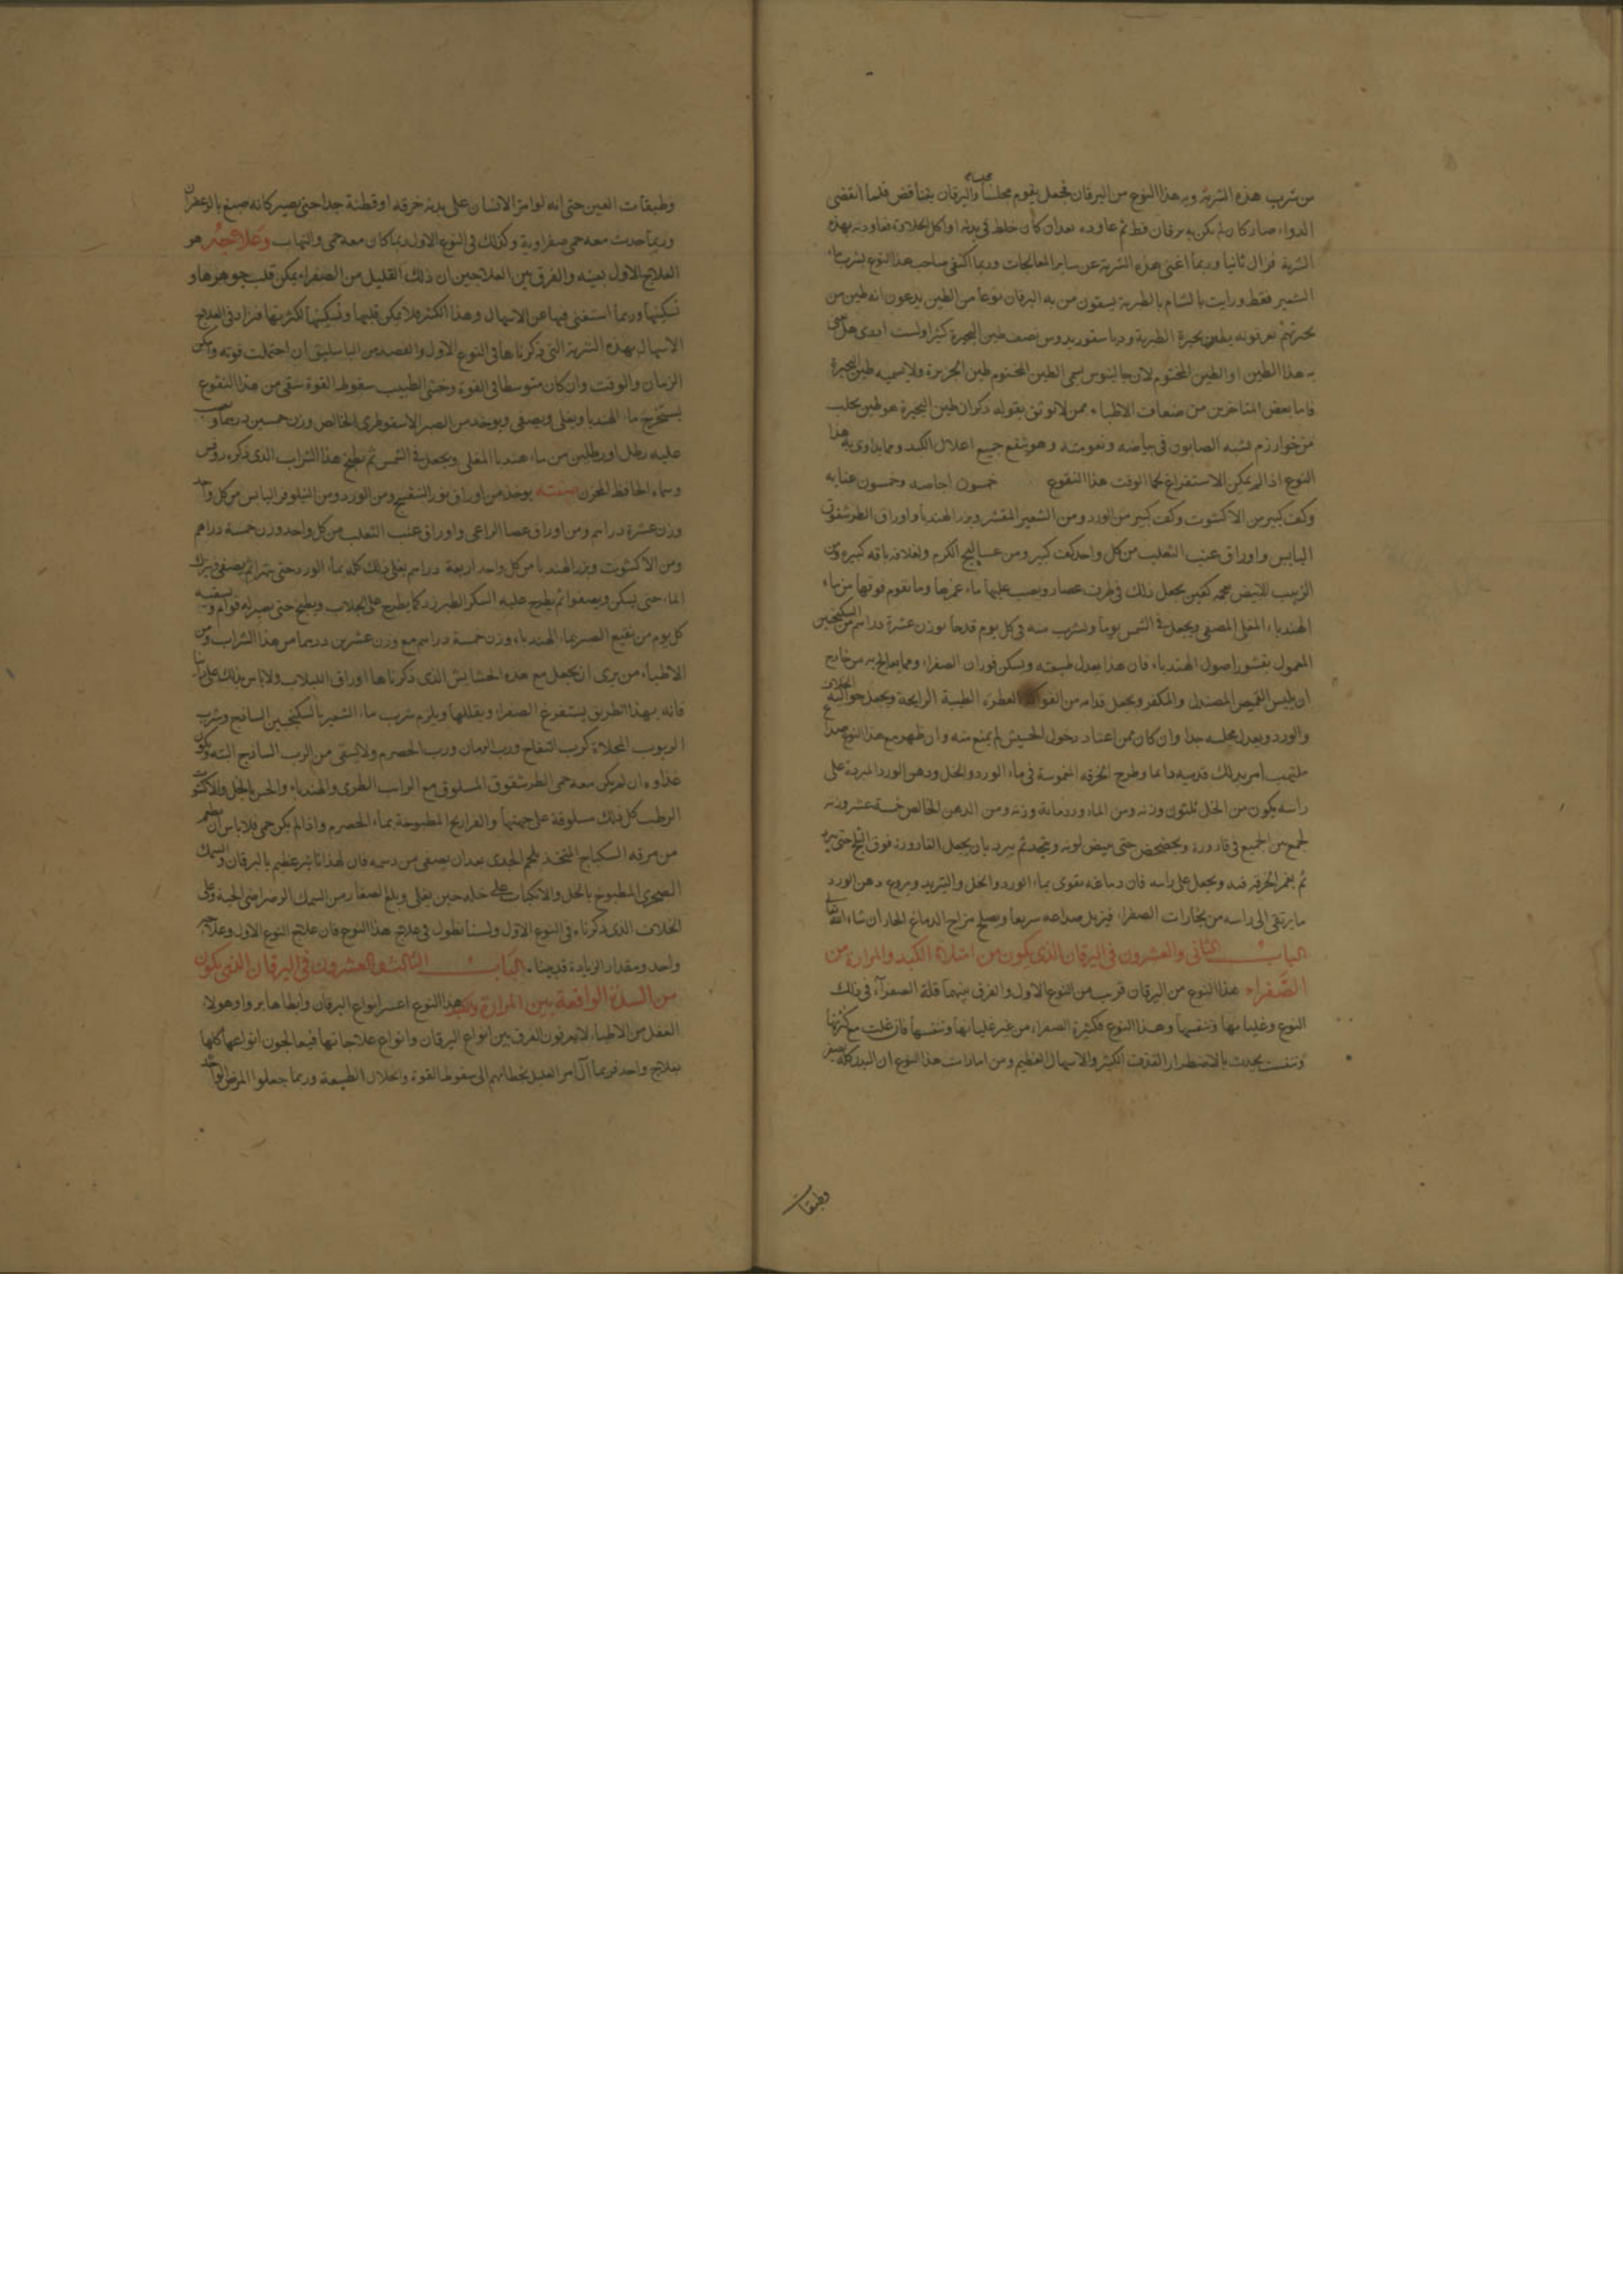 من شرب هذه الشربة وبه هذا النوع من اليرقان فجعل يقوم مجلسا مجلسا واليرقان يتناقص فلما انقضى
الدواء صار كان لم يكن به يرقان قط ثم عاوده بعد ان كان خلط في بدنه او اكل الحلاوة فعاودته بهذه
الشربة فزال ثانيا وربما اغنى هذه الشربة عن ساير المعالجات وربما اكتفى صاحب هذا النوع بشرب ماء
الشعير فقط ورايت بالشام بالطبرية يسقون من به اليرقان نوعا من الطين يدعون انه طين من
بحيرتهم يعرفونه بطين بحيرة الطبرية ودياسقوريدوس يصف طين البحيرة كثيرا ولست ادرى هل عنى
به هذا الطين او الطين المختوم لان جالينوس يسمى الطين المختوم طين الجزيرة ولا يسميه طين البحيرة
فاما بعض المتاخرين من ضعاف الاطباء ممن لا يوثق بقوله ذكر ان طين البحيرة هو طين يجلب
من خوارزم يشبه الصابون في بياضه ونعومته وهو ينفع جميع اعلال الكبد ومما يداوى به هذا
النوع اذا لم يمكن الاستفراغ الوقت هذا النقوع خمسون اجاصه وخمسون عنابه
وكف كبير من الاكشوت وكف كبير من الورد ومن الشعير المقشر وبزر الهندبا واوراق الطرشقوق
اليابس واوراق عنب الثعلب من كل واحد كف كبير ومن عساليج الكرم ولغلافه باقه كبيره ومن
الزبيب الابيض بعجمه كفين يجعل ذلك في ظرف غضار ويصب عليها ماء غمرها وما يقوم فوقها من ماء
الهندباء المغلى المصفى ويجعل في الشمس يوما ويشرب منه في كل يوم قدحا بوزن عشرة دراهم من السكنجبين
المعمول بقشور اصول الهندباء فان هذا يعدل طبيعته ويسكن فوران الصفراء ومما يعالج به من خارج
ان يلبس القميص المصندل والمكفر ويجعل قدامه من الفواكه العطرة الطيبة الرايحة ويجعل حواليه الخلاف
والورد ويعدل مجلسه جدا وان كان ممن اعتاد دخول الخيش لم يمنع منه وان ظهر مع هذا النوع صداع
ملتهب امر بدلك قدميه دايما وطرح الخرقه المغموسة في ماء الورد والخل ودهن الورد المبردة على
راسه يكون من الخل ثلثون وزنه ومن الماورد مايه وزنه ومن الدهن الخالص خمسة عشر وزنه
يجمع من الجميع في قارورة ويخضخض حتى يبيض لونه ويتحد ثم يبرد بان يجعل القارورة فوق الثلج حتى يبرد
ثم يغمر الخرقه فيه ويجعل على راسه فان دماغه يقوى بماء الورد والخل والتبريد ويروع دهن الورد
ما يرتقى الى راسه من بخارات الصفراء فيزيل صداعه سريعا ويصلح مزاج الدماغ الحار ان شاء الله تعالى
الباب الثاني والعشرون في اليرقان الذي يكون من امتلاء الكبد والمرارة من
الصفراء هذا النوع من اليرقان قريب من النوع الاول والفرق بينهما قلة الصفراء في ذلك
النوع وغليانها وتنفسها وهذا النوع فكثيرة الصفراء من غير غليانها وتنفسها فان غلت مع كثرتها
وتنفست يحدث بالاضطرار القذف الكثير والاسهال العظيم ومن امارات هذا النوع ان البدن كله يصفر
وطبقات
وطبقات العين حتى انه لو امر الانسان على بدنه خرقه او قطنة جدا حتى يصير كانه صبغ بالزعفران
وربما حدث معه حمى صفراوية وكذلك في النوع الاول ربما كان معه حمى والتهاب وعلاجه هو
العلاج الاول بعينه والفرق بين العلاجين ان ذلك القليل من الصفراء يمكن قلب جوهرها و
تسكينها وربما استغنى فيها عن الاسهال وهذا الكثير فلا يمكن قلبها وتسكينها لكثرتها فيزاد في العلاج
الاسهال بهذه الشربة التي ذكرناها في النوع الاول والفصد من الباسليق ان احتملت قوته وامكن
الزمان والوقت وان كان متوسطا في القوة وخشى الطبيب سقوط القوة سقى من هذا النقوع
يستخرج ماء الهندبا ويغلى ويصفى ويوخذ من الصبر الاسقوطرى الخالص وزن خمسين درهما ويصب
عليه رطل او رطلين من ماء هندبا المغلى ويجعل في الشمس ثم يطبخ هذا الشراب الذي ذكره روفس
وسماه الحافظ المحزن صفته يوخذ من اوراق نور البنفسج ومن الورد ومن النيلوفر اليابس من كل واحد
وزن عشرة دراهم ومن اوراق عصا الراعى واوراق عنب الثعلب من كل واحد وزن خمسة دراهم
ومن الاكشوت وبزر الهندبا من كل واحد اربعة دراهم يغلى ذلك كله بماء الورد حتى يتهرا ثم يصفى ويترك
الماء حتى يسكن ويصفو ثم يطرح عليه السكر الطبرزد كما يطرح على الجلاب ويطبخ حتى يصير له قوام ويسقيه
كل يوم من نقيع الصبر بماء الهندباء وزن خمسة دراهم مع وزن عشرين درهما من هذا الشراب ومن
الاطباء من يرى ان يجعل مع هذه الحشايش الذي ذكرناها اوراق اللبلاب ولا باس بذلك على
فانه بهذا الطريق يستفرغ الصفراء ويقللها ويلزم شرب ماء الشعير بالسكنجبين الساذج وشرب
الربوب المحلاة كرب التفاح ورب الرمان ورب الحصرم ولا يسقى من الرب الساذج البتة ويكون
غذاوه ان لم يكن معه حمى الطرشقوق المسلوق مع الراب الطرى والهندباء والخس بالخل والاكشوت
الرطب كل ذلك مسلوقة على جهتها والفراريج المطبوخة بماء الحصرم واذا لم يكن حمى فلا باس ان يطعم
من مرقه السكباج المتخذ بلحم الجدى بعد ان يصفى من دسمه فان لهذا تاثير عظيم باليرقان والسمك
الصخرى المطبوخ بالخل والانكباب على خله حين يغلى وبلع الصغار من السمك الرضراضى الحية وعلى
الخلاف الذي ذكرناه في النوع الاول ولسنا نطول في علاج هذا النوع فان علاج النوع الاول وعلاجه
واحد ومقدار الزيادة قد بينا. الباب الثالث والعشرون في اليرقان الذي يكون
من السدة الواقعة بين المرارة والكبد هذا النوع اعسر انواع اليرقان وابطاها بروا وهولاء
الغفل من الاطباء لا يعرفون الفرق بين انواع اليرقان وانواع علاجاتها فيعالجون انواعها كلها
بعلاج واحد فربما آل امر العليل بخطائهم الى سقوط القوة وانحلال الطبيعة وربما جعلوا المرض